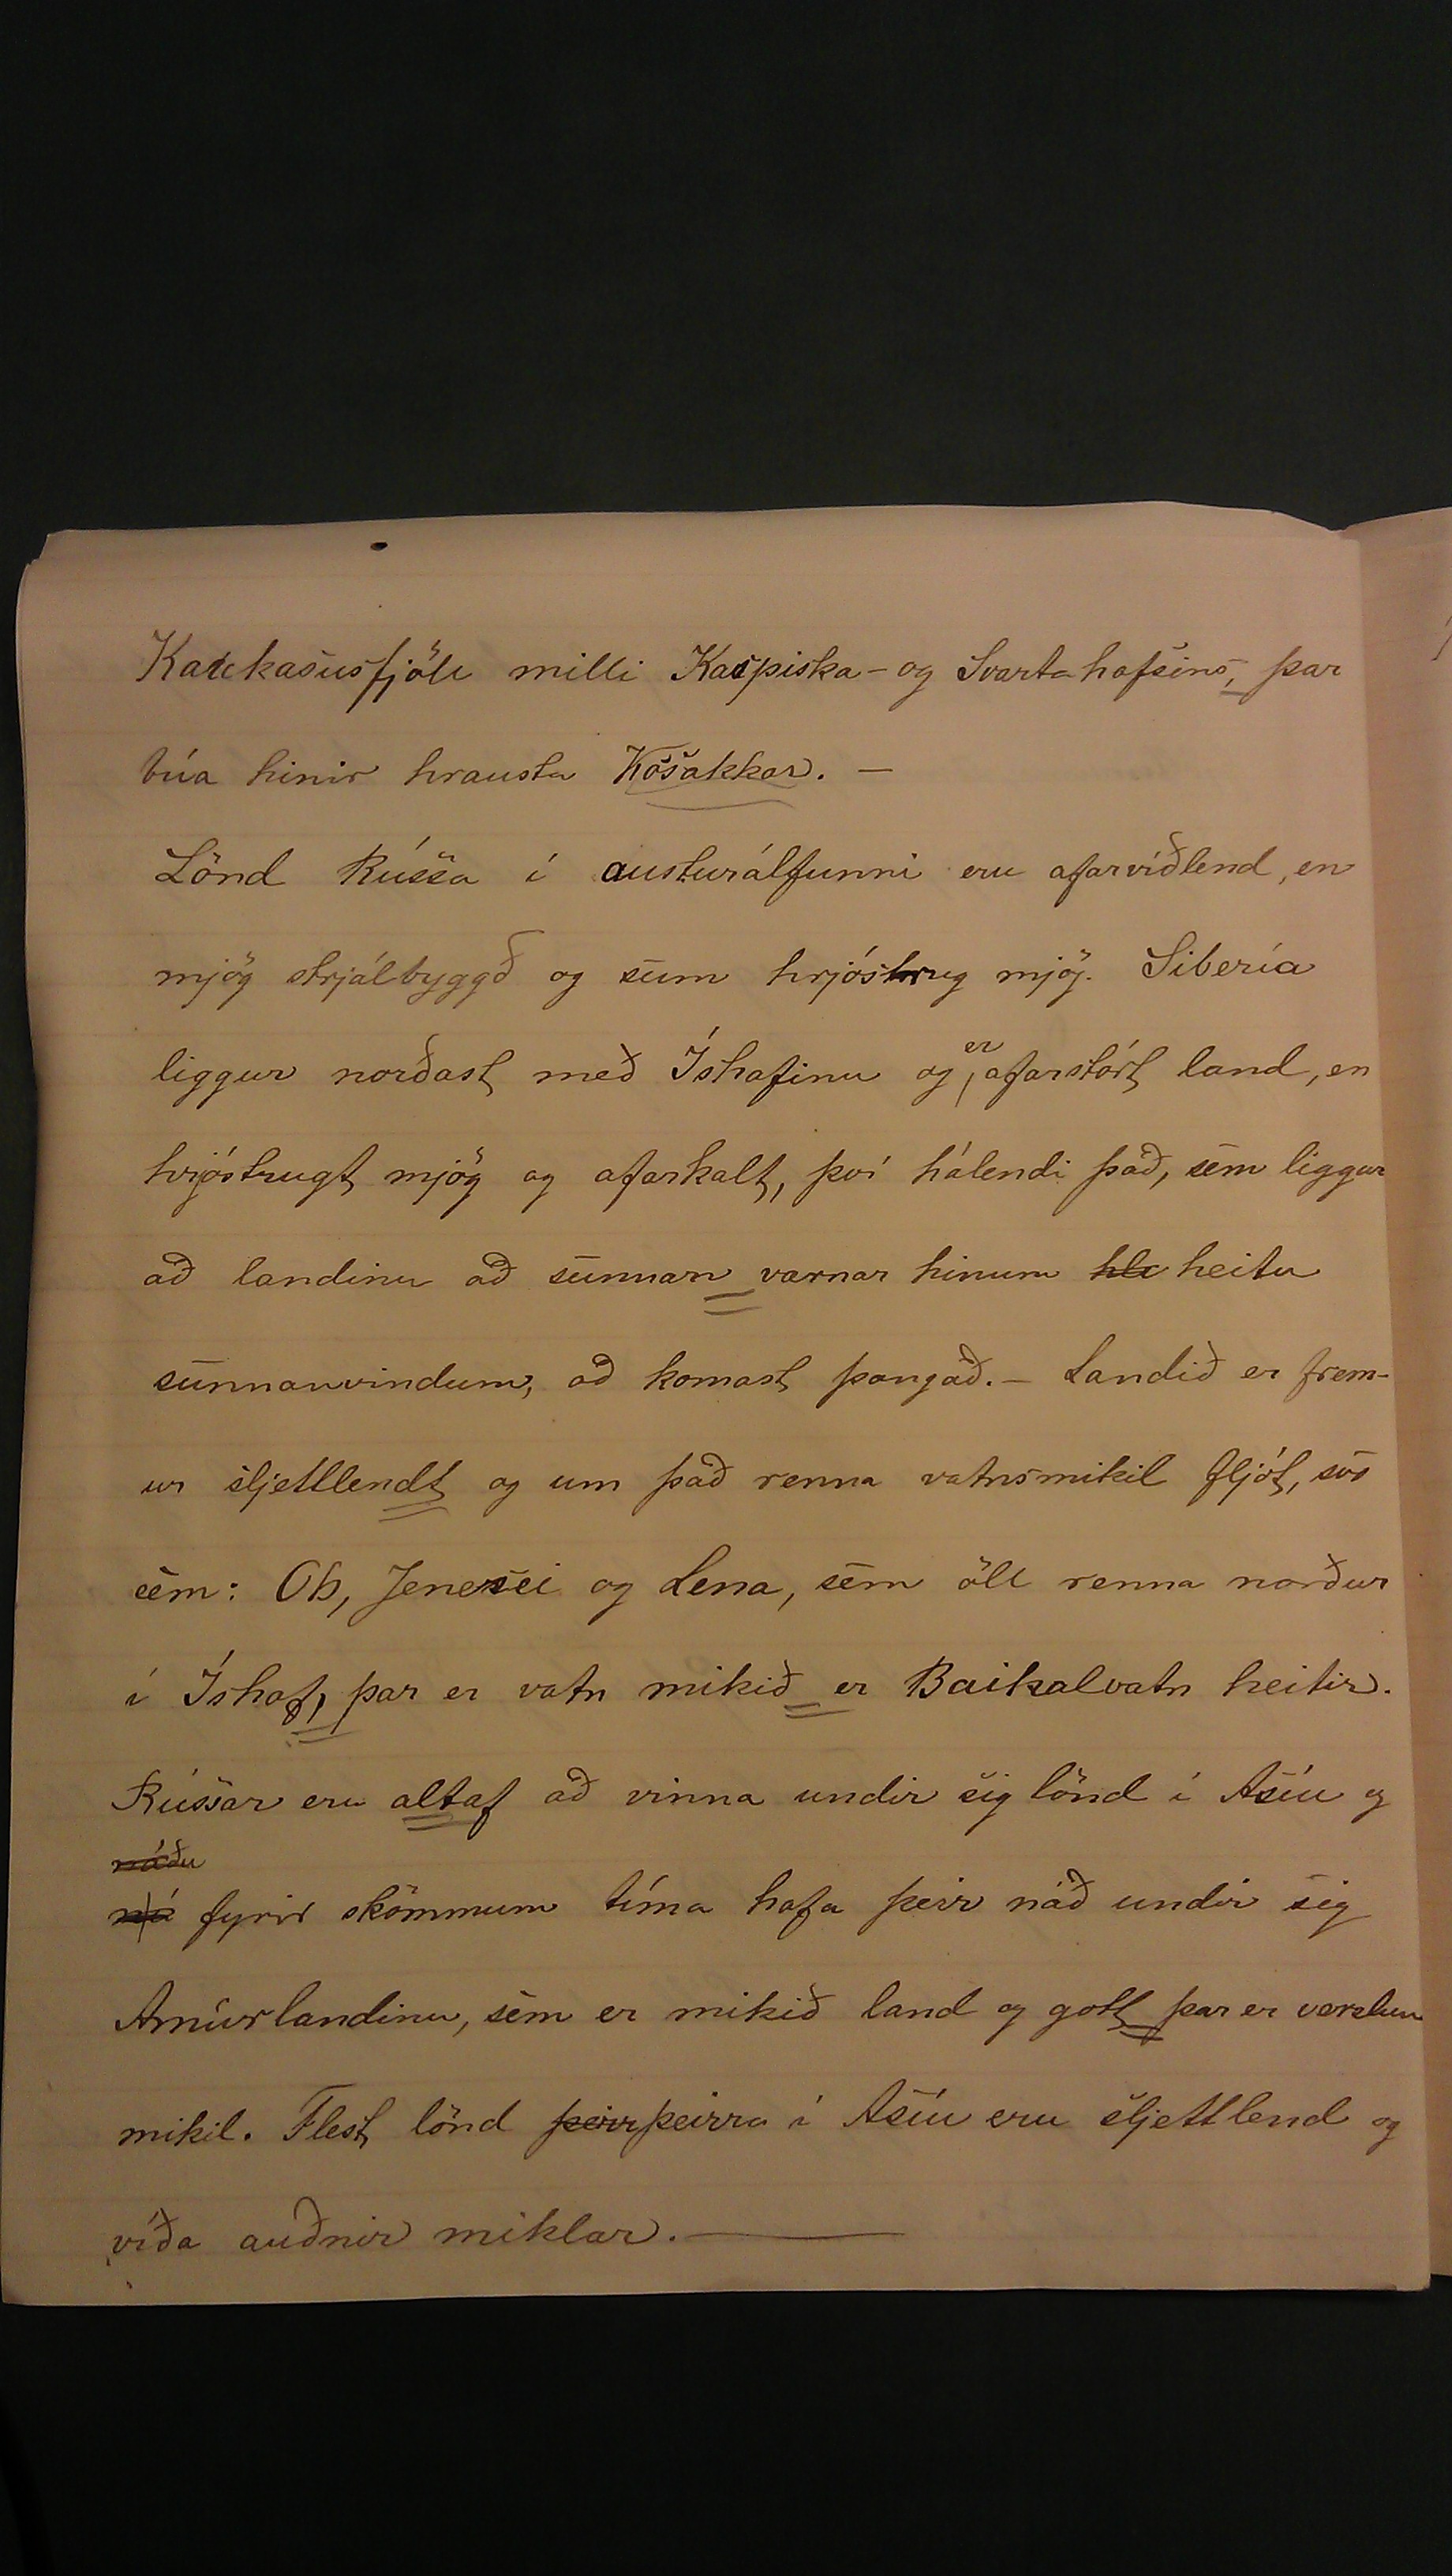 Kaukasusfjöll milli Kaspiska- og Svartahafsins, þar
búa hinir hrausta Kósakkar. —
Lönd Rússa í austurálfunni eru afarvíðlend, en
mjög strjálbyggð og sum hrjóstrug mjög. Sibería
liggur norðast með Íshafinu og er afarstórt land, en
hrjóstrugt mjög og afarkalt, því hálendi það, sem liggur
að landinu að sunnan varnar hinum heitu
sunnanvindum, að komast þangað. — Landið er frem-
ur sljettlendt og um það renna vatnsmikil fljót, svo
sem: Ob, Jenesei og Lena, sem öll renna norður
í Íshaf, þar er vatn mikið er Baikalvatn heitir.
Rússar eru altaf að vinna undir sig lönd í Asíu og
náðu
fyrir skömmum tíma hafa þeir náð undir sig
Amúrlandinu, sem er mikið land og gott þar er verzlun
mikil. Flest lönd þeirr þeirra í Asíu eru sljettlend og
víða auðnir miklar. —